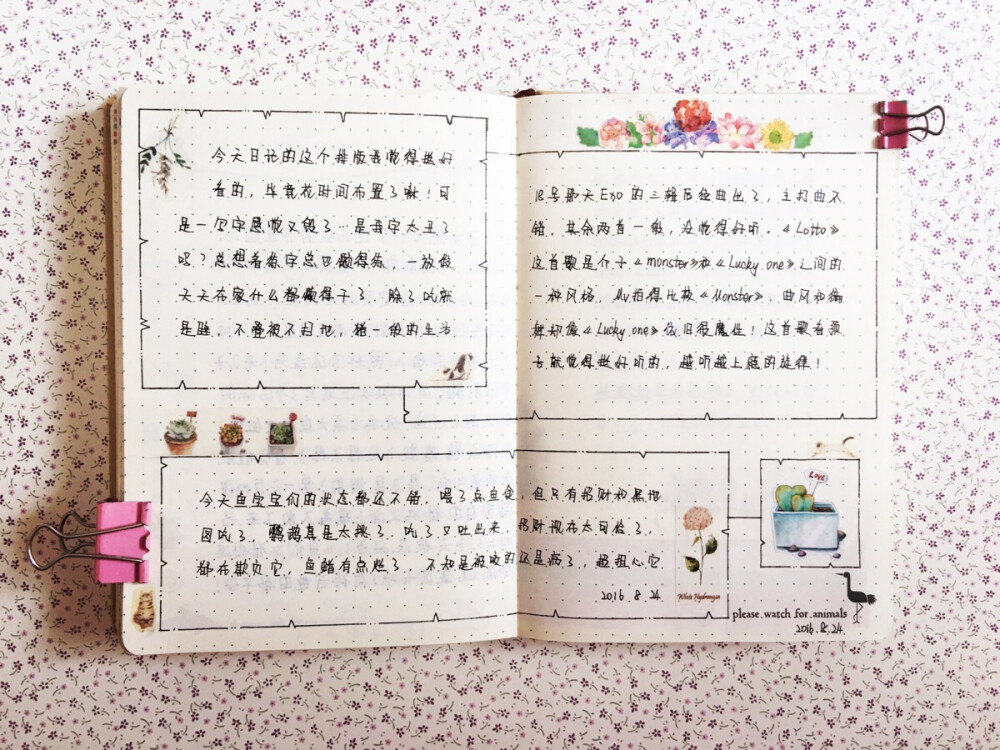 今天日记的这个排版我觉得挺好
看的，毕竟花时间布置了啾！可
是一仞字感觉又毁了…是我字太丑了
吧？总想着练字总又懒得练，一放假
天天在家什么都懒得干了，除了吃就
是睡，不管被不扫地，猪一般的生活
18号那天Exo的三辑后续曲出了，主打曲不
错，其余两首一般，没觉得好听。《Lotto》
这首歌是介于《monster》和《Lucky one》之间的
一种风格，MV拍得比较《Monster》，曲风和编
舞却像《Lucky one》依旧很魔性！这首歌看歌
名就觉得挺好听的，越听越上瘾的旋律！
今天鱼宝宝们的状态都还不错，喂了点鱼食，但只有招财和黑抱
图吃了，鹦鹉真是太挑了，吃了又吐出来，招财现在太可怜了，
都在欺负它，鱼鳍有点烂了，不知是被咬的还是病了，超担心它
2016.8.24
White Hydrangea
LOVE
please.watch.for.animals
2016.8.24
堆糖